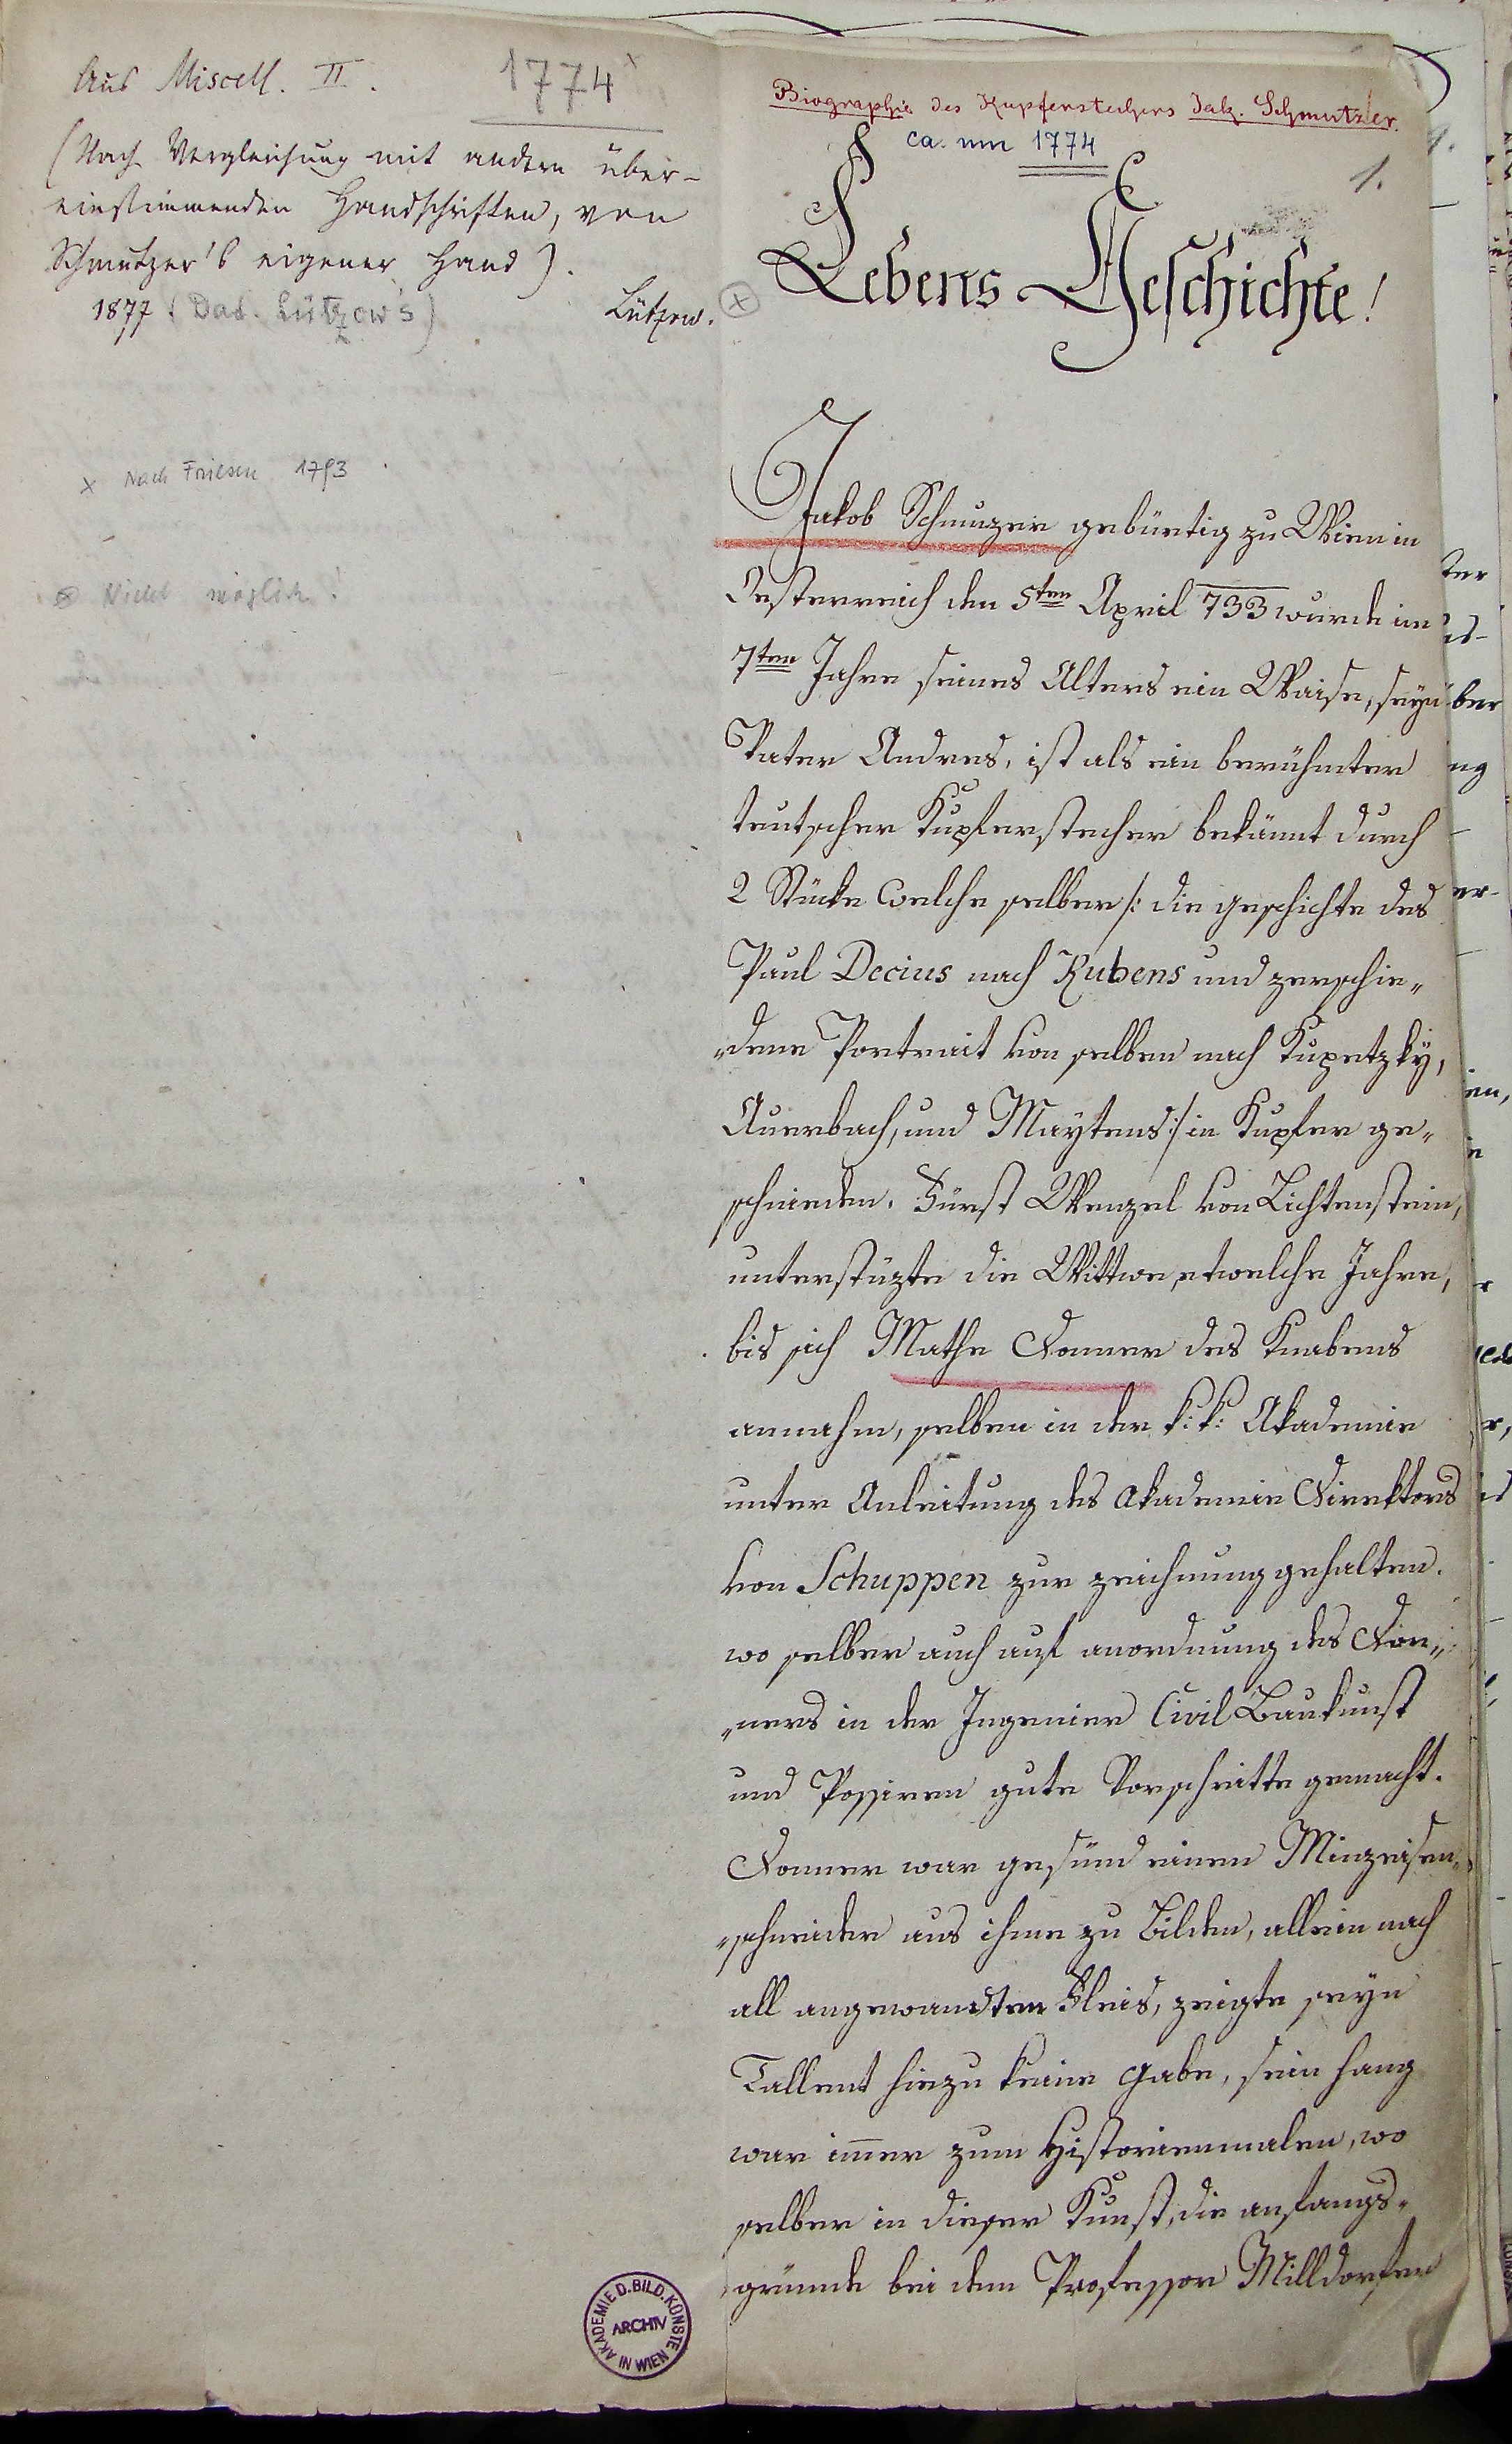 Aus Miscell. II.
1774 x
(Nach Vergleichung mit andern über-
einstimmenden Handschriften, von
Schmutzer's eigener Hand).
1877 (Dad. Lützow's) Lützow.
x Nach Friesen 1793.
⊗ Nicht möglich!
Biographie des Kupferstechers Jak. Schmutzer.
ca. um 1774
1.
⊗ Lebens Geschichte!
Jakob Schmuzer gebürtig zu Wien in
Oesterreich den 5ten April 733 wurde im
7ten Jahre seines Alters ein Waise, seyn
Vater Andres, ist als ein berühmter
teutscher Kupferstecher bekannt durch
2 Stücke welche selber /: die geschichte des
Paul Decius nach Rubens und verschie„
„dene Portrait von selben nach Kupetzkÿ,
Auerbach, und Maytens :/ in Kupfer ge„
schnieden. Fürst Wenzel von Lichtenstein,
unterstüzte die Wittwe etwelche Jahre,
bis sich Mathe Donner des Knabens
annahm, selben in der k: k: Akademie
unter Anleitung des Akademie Direktors
von Schuppen zur zeichnung gehalten.
wo selber auch auf anordnung des Don„
„ners in der Ingenier Civil Baukunst
und Possiren gute Vorschritte gemacht.
Donner war gesünd einen Minzeisen„
„schneider aus ihme zu Bilden, allein nach
all angewandten Fleis, zeigte seyn
Tallent hiezu keine Gabe, sein hang
war im̄er zum Historienmalen, wo
selber in dieser Kunst, die anfangs„
gründe bei dem Professor Milldorfer
AKADEMIE D. BILD. KÜNSTE IN WIEN
ARCHIV